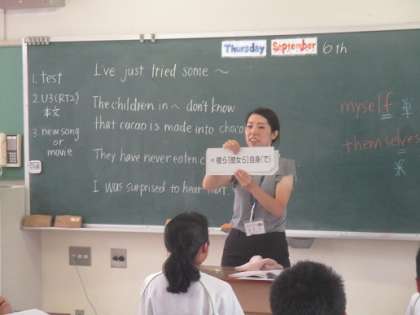 Thursday September 6th
1. test
2. U3(RT2)
本文
3. new song
or
movie
I've just tried some ~
The children in ~ don't know
that cacao is made into choco
They have never eaten c
I was surprised to hear that.
myself
themselves
彼ら[彼女ら]自身(で)